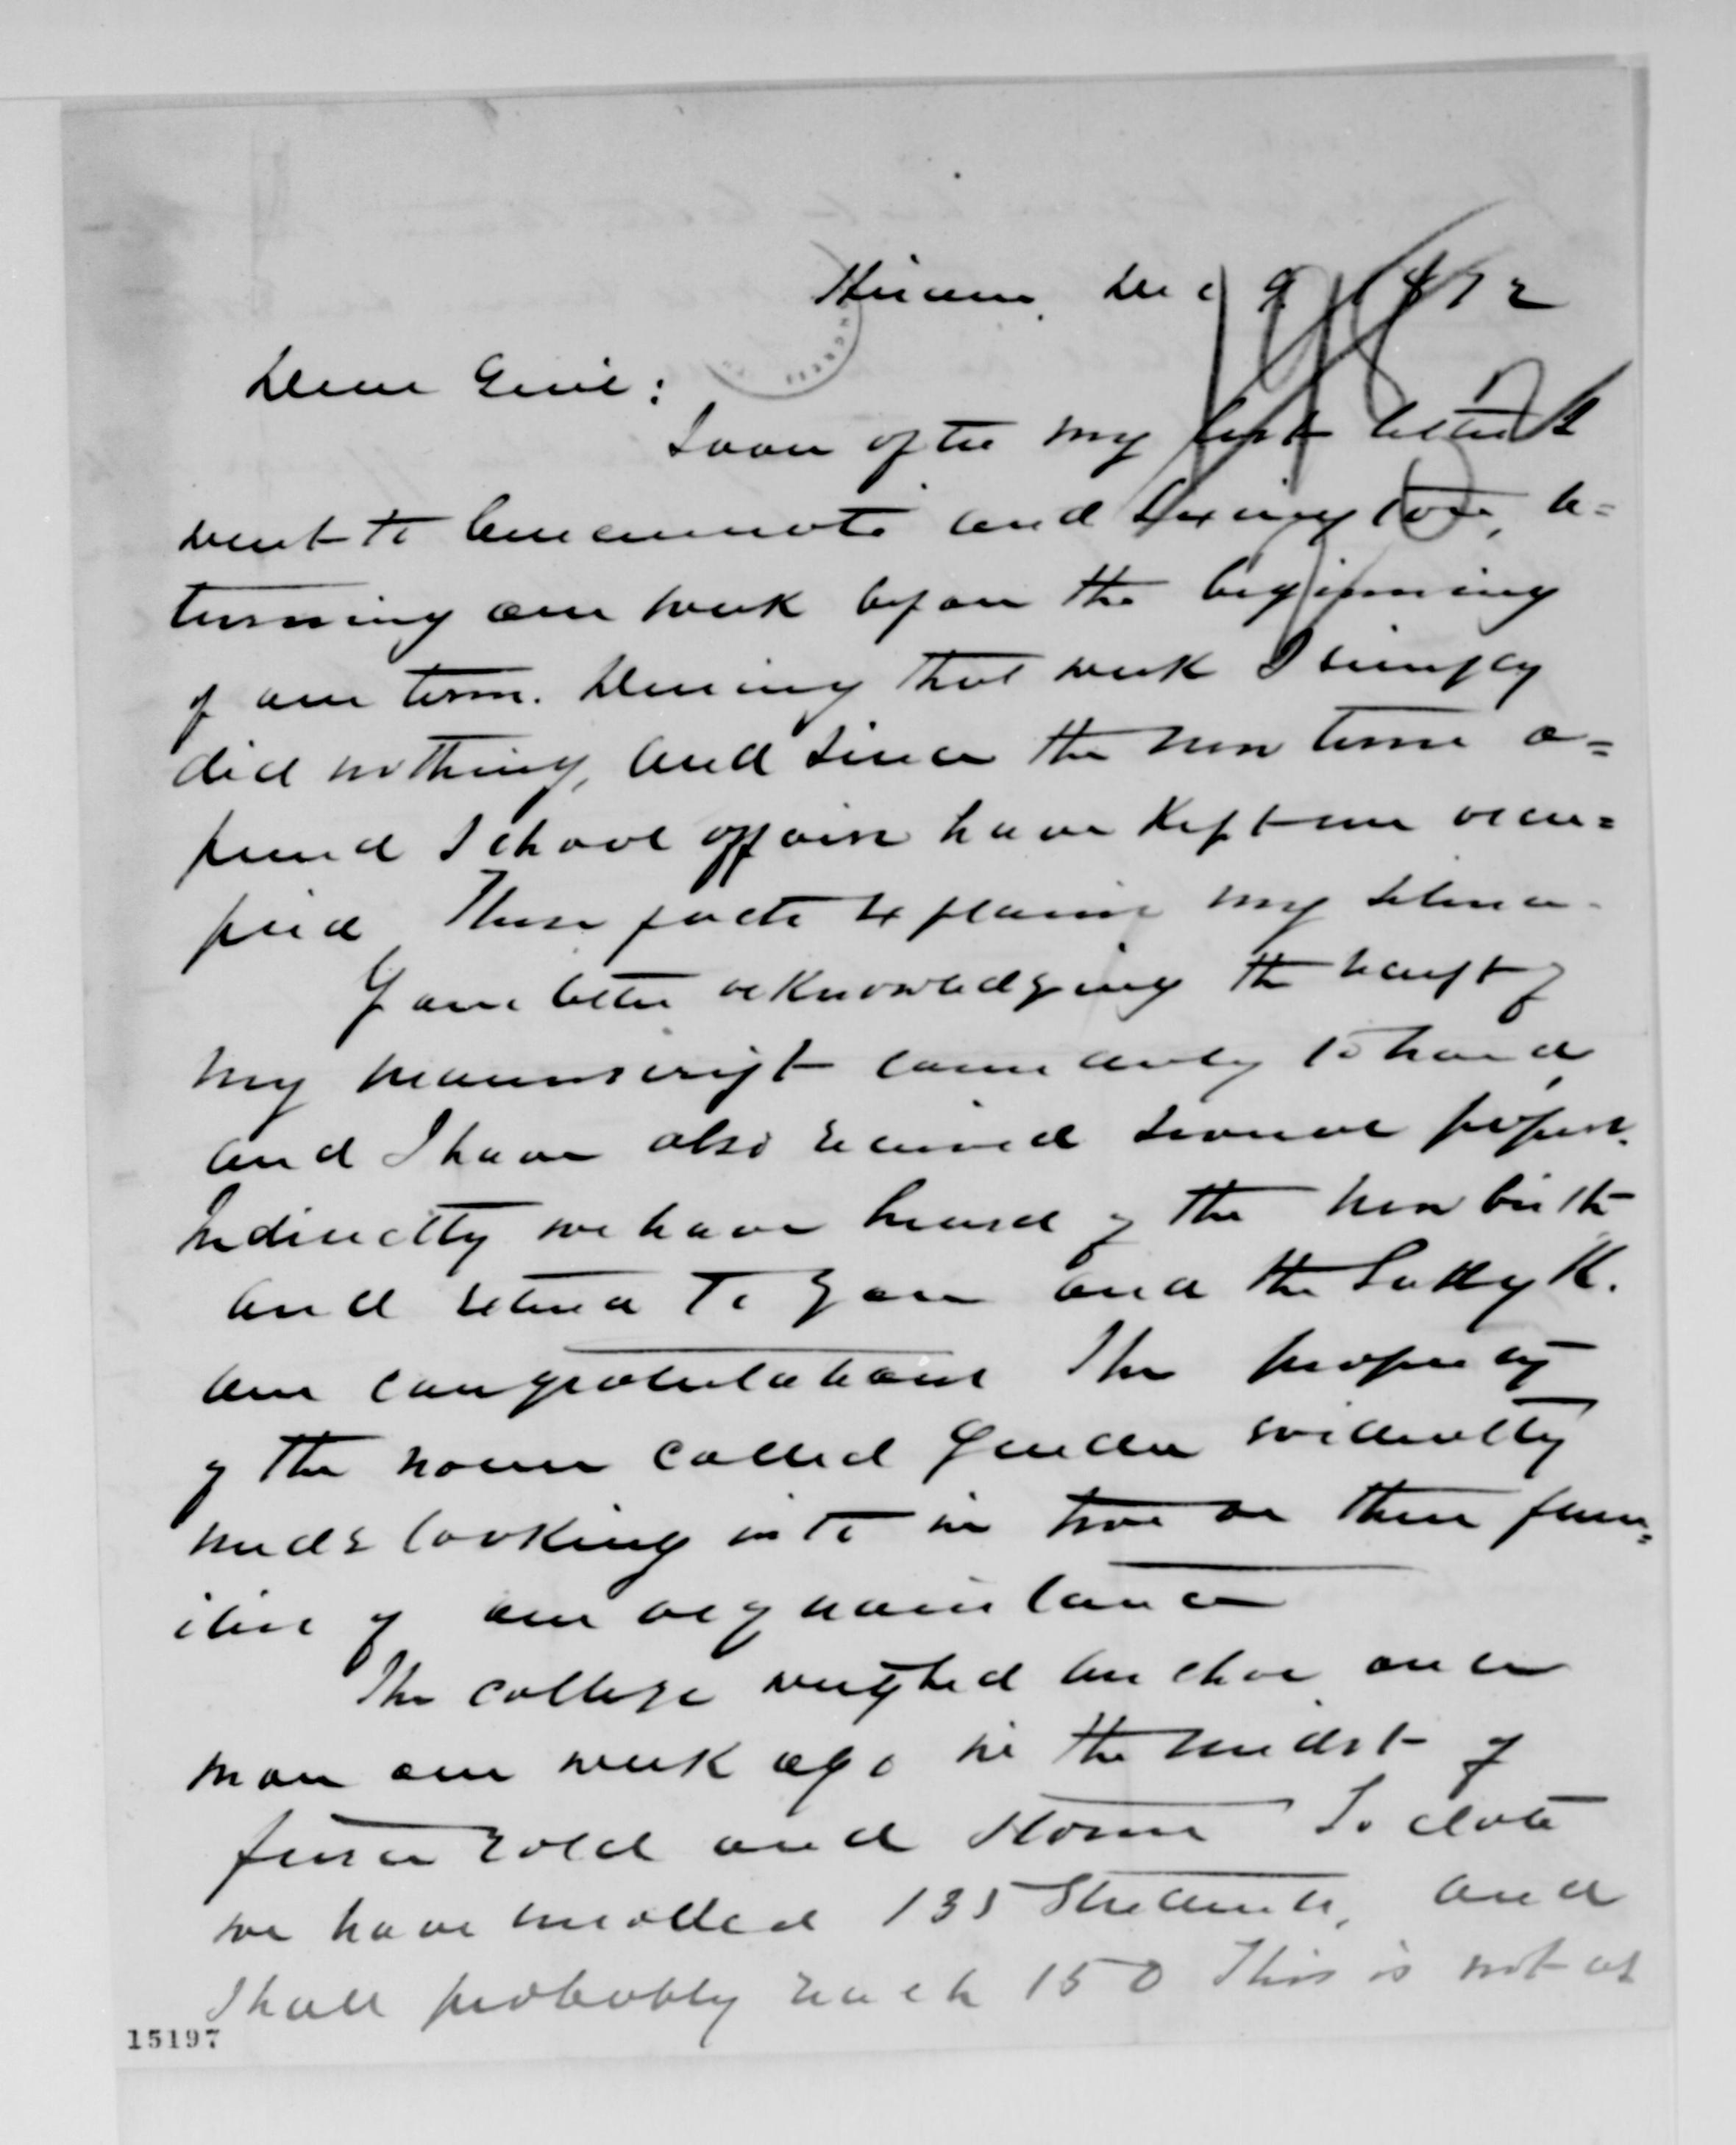 Hiram, Dec 9 1872
Dear Genl:
Soon after my last letter I
went to Cincinnati and Lexington, re=
turning one week before the beginning
of our term. During that week I simply
did nothing, and since the new term o=
pened School affairs have kept me occu=
pied. These facts explain my silence.
Your letter acknowledging the receipt of
my manuscript came duly to hand,
and I have also received several papers.
Indirectly we have heard of the new birth
and return to you and the Lady
our congratulations The property
of the noun called Gender evidently
needs looking into in two or three fam=
ilies of our acquaintance
The college weighed anchor once
more one week ago in the midst of
fierce cold and storm To date
we have enrolled 135 Students, and
shall probably reach 150 This is not as
15197